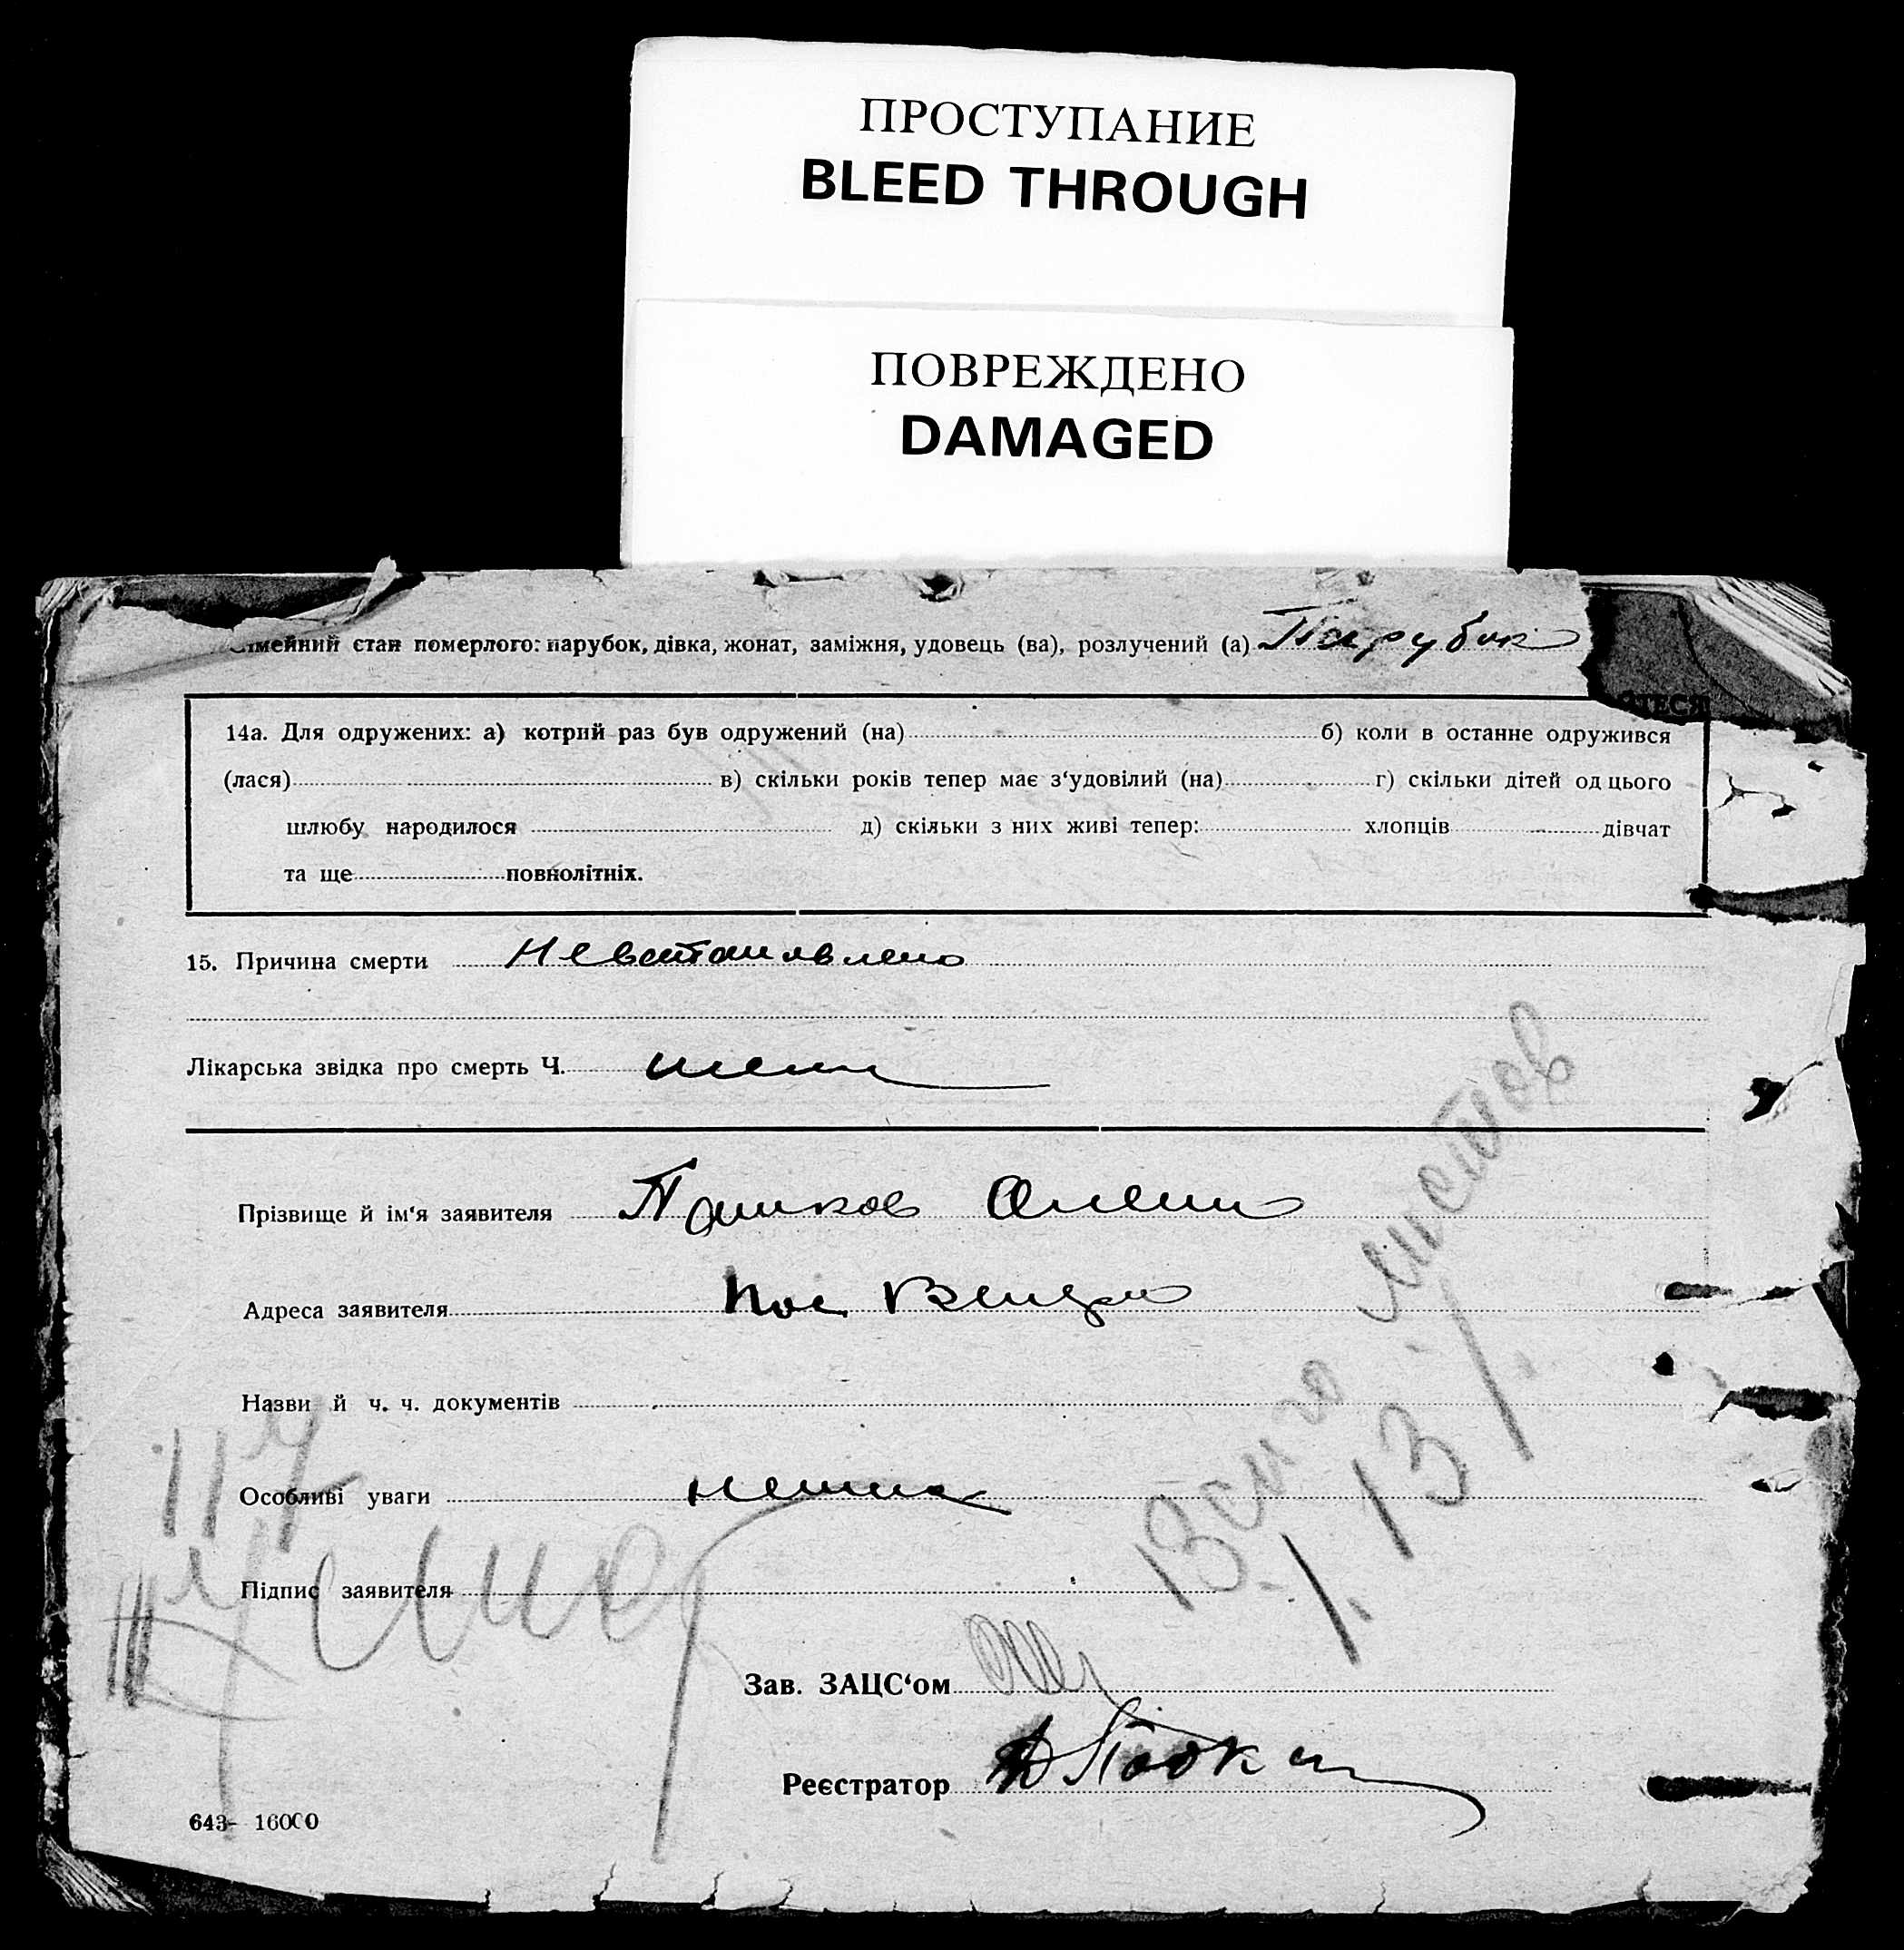 ПРОСТУПАНИЕ
BLEED THROUGH
ПОВРЕЖДЕНО
DAMAGED
імейний стан померлого: парубок, дівка, жонат, заміжня, удовець (ва), розлучений (а) Парубок
ТЕСЯ
14а. Для одружених: а) котрий раз був одружений (на) б) коли в останне одружився
(лася) в) скільки років тепер має з‘удовілий (на) г) скільки дітей од цього
шлюбу народилося д) скільки з них живі тепер: хлопців дівчат
та ще повнолітніх.
15. Причина смерти Невстановлено
Лікарська звідка про смерть Ч.
Прізвище й ім‘я заявителя Пашков
Адреса заявителя
Назви й ч. ч. документів
Особливі уваги немає
Підпис заявителя
Всего листов
113
117
Зав. ЗАЦС‘ом
Реєстратор
643- 16000